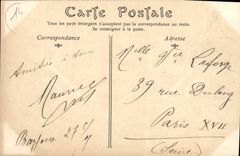 Carte Postale
Tous les pays étrangers n'acceptent pas la correspondance au recto.
Se renseigner à la poste.
Correspondance
Adresse
Amitiés à tous
Maurice
Melle
39 rue Dulong
Paris XVII
(Seine)